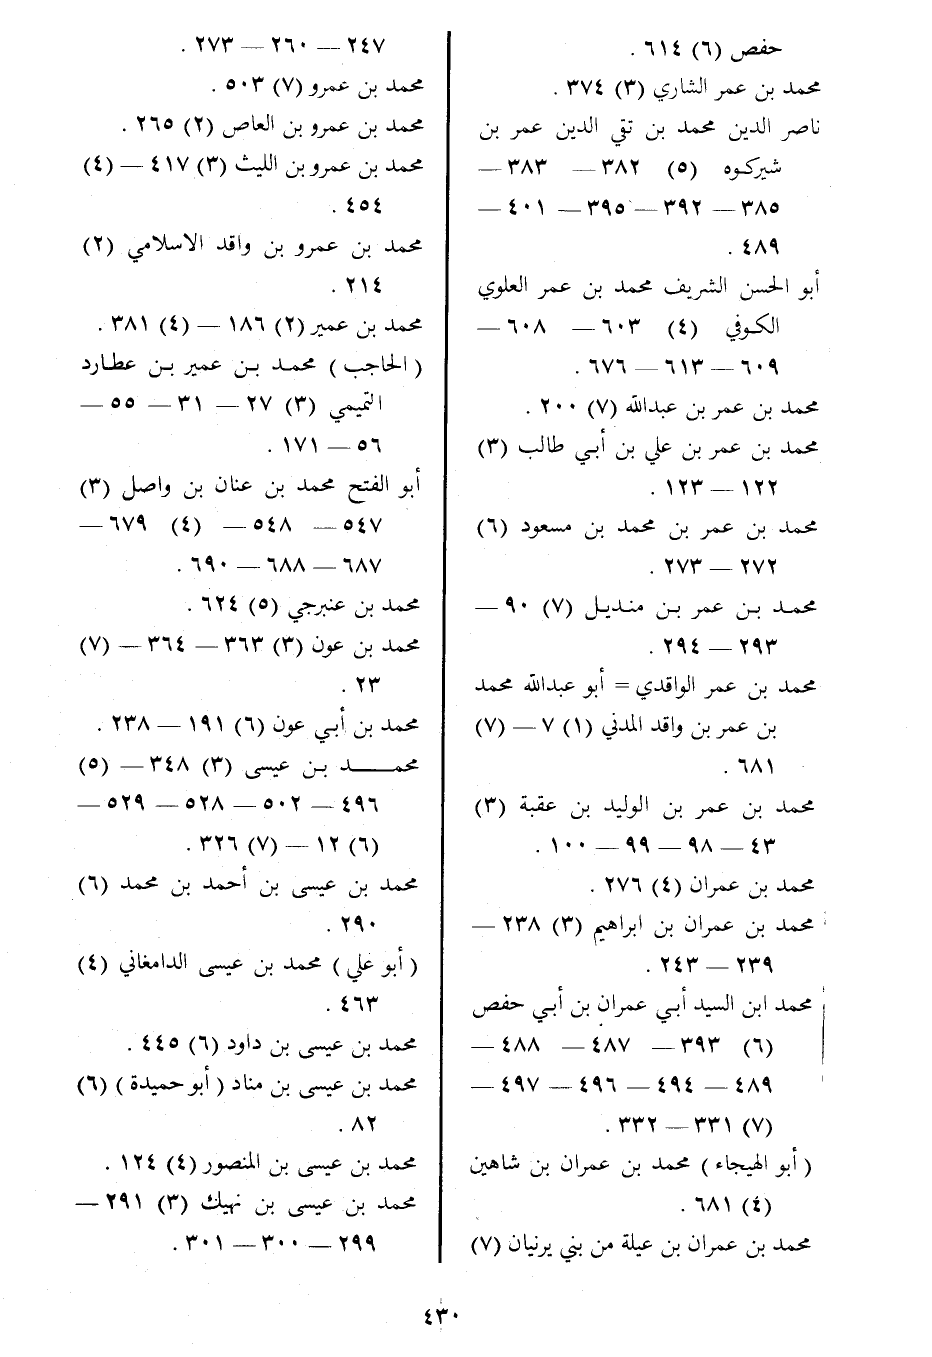 حفص (٦) ٦١٤ .
محمد بن عمر الشاري (٣) ٣٧٤ .
ناصر الدين محمد بن تقي الدين عمر بن
شيركوه (٥) ٣٨٢ — ٣٨٣ —
٣٨٥ — ٣٩٢ — ٣٩٥ — ٤٠١ —
٤٨٩ .
أبو الحسن الشريف محمد بن عمر العلوي
الكوفي (٤) ٦٠٣ — ٦٠٨ —
٦٠٩ — ٦١٣ — ٦٧٦ .
محمد بن عمر بن عبدالله (٧) ٢٠٠ .
محمد بن عمر بن علي بن أبي طالب (٣)
١٢٢ — ١٢٣ .
محمد بن عمر بن محمد بن مسعود (٦)
٢٧٢ — ٢٧٣ .
محمد بن عمر بن منديل (٧) ٩٠ —
٢٩٣ — ٢٩٤ .
محمد بن عمر الواقدي = أبو عبدالله محمد
بن عمر بن واقد المدني (١) ٧ — (٧)
٦٨١ .
محمد بن عمر بن الوليد بن عقبة (٣)
٤٣ — ٩٨ — ٩٩ — ١٠٠ .
محمد بن عمران (٤) ٢٧٦ .
محمد بن عمران بن ابراهيم (٣) ٢٣٨ —
٢٣٩ — ٢٤٣ .
محمد ابن السيد أبي عمران بن أبي حفص
(٦) ٣٩٣ — ٤٨٧ — ٤٨٨ —
٤٨٩ — ٤٩٤ — ٤٩٦ — ٤٩٧ —
(٧) ٣٣١ — ٣٣٢ .
( أبو الهيجاء ) محمد بن عمران بن شاهين
(٤) ٦٨١ .
محمد بن عمران بن عيلة من بني يرنيان (٧)
٢٤٧ — ٢٦٠ — ٢٧٣ .
محمد بن عمرو (٧) ٥٠٣ .
محمد بن عمرو بن العاص (٢) ٢٦٥ .
محمد بن عمرو بن الليث (٣) ٤١٧ — (٤)
٤٥٤ .
محمد بن عمرو بن واقد الاسلامي (٢)
٢١٤ .
محمد بن عمير (٢) ١٨٦ — (٤) ٣٨١ .
( الحاجب ) محمد بن عمير بن عطارد
التميمي (٣) ٢٧ — ٣١ — ٥٥ —
٥٦ — ١٧١ .
أبو الفتح محمد بن عنان بن واصل (٣)
٥٤٧ — ٥٤٨ — (٤) ٦٧٩ —
٦٨٧ — ٦٨٨ — ٦٩٠ .
محمد بن عنبرجي (٥) ٦٢٤ .
محمد بن عون (٣) ٣٦٣ — ٣٦٤ — (٧)
٢٣ .
محمد بن أبي عون (٦) ١٩١ — ٢٣٨ .
محمد بن عيسى (٣) ٣٤٨ — (٥)
٤٩٦ — ٥٠٢ — ٥٢٨ — ٥٢٩ —
(٦) ١٢ — (٧) ٣٢٦ .
محمد بن عيسى بن أحمد بن محمد (٦)
٢٩٠ .
( أبو علي ) محمد بن عيسى الدامغاني (٤)
٤٦٣ .
محمد بن عيسى بن داود (٦) ٤٤٥ .
محمد بن عيسى بن مناد ( أبو حميدة ) (٦)
٨٢ .
محمد بن عيسى بن المنصور (٤) ١٢٤ .
محمد بن عيسى بن نهيك (٣) ٢٩١ —
٢٩٩ — ٣٠٠ — ٣٠١ .
٤٣٠